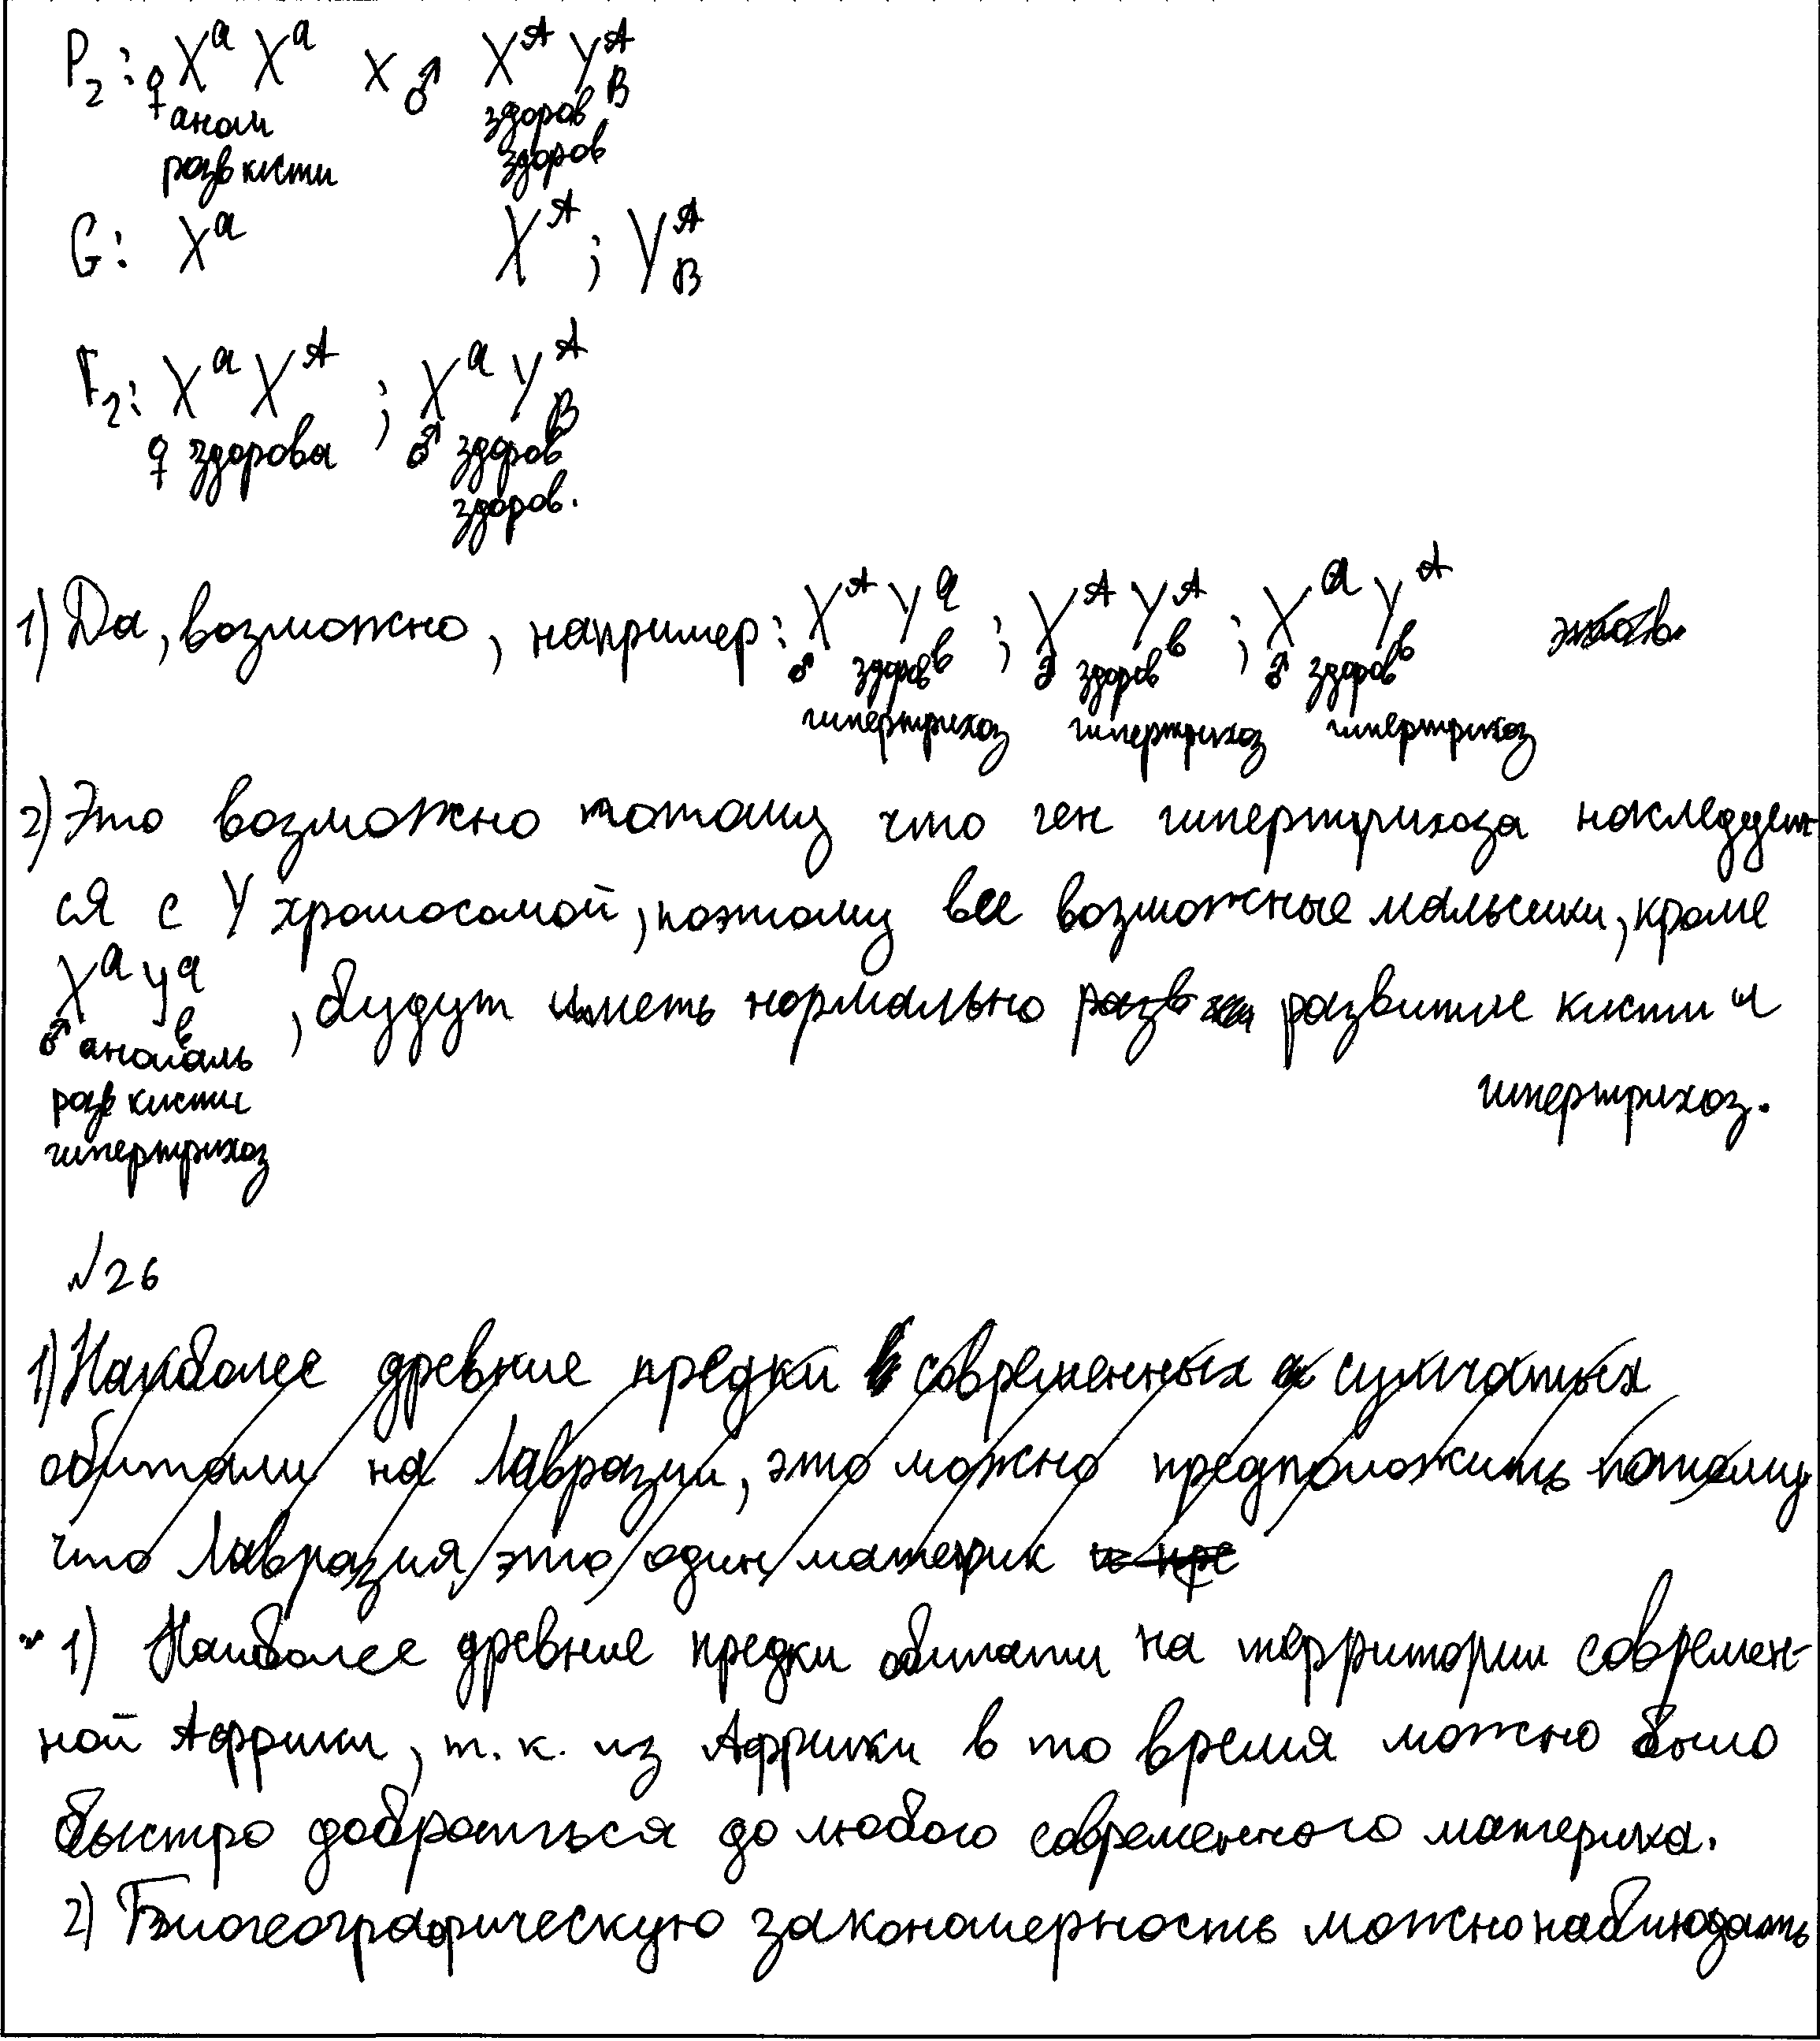 P₂: ♀ XᵃXᵃ x ♂ XᴬYᴬ
B
аном здоров
разв кисти здоров
G: Xᵃ Xᴬ ; Yᴬ
B
F₂: XᵃXᴬ ; XᵃYᴬ
B
♀ здорова ♂ здоров
здоров.
1) Да, возможно, например: XᴬYᵃ ; XᴬYᴬ ; XᵃYᴬ
в в в
♂ здоров ♂ здоров ♂ здоров
гипертрихоз гипертрихоз гипертрихоз
2) Это возможно потому что ген гипертрихоза наследует-
ся с Y хромосомой, поэтому все возможные мальчики, кроме
XᵃYᵃ , будут иметь нормально развитие кисти и
в
♂ аномаль гипертрихоз.
разв кисти
гипертрихоз
№26
1) Наиболее древние предки современных сумчатых
обитали на Лавразии, это можно предположить потому
что Лавразия это один материк и пре
1) Наиболее древние предки обитали на территории современ-
ной Африки, т.к. из Африки в то время можно было
быстро добраться до любого современного материка.
2) Биогеографическую закономерность можно наблюдать